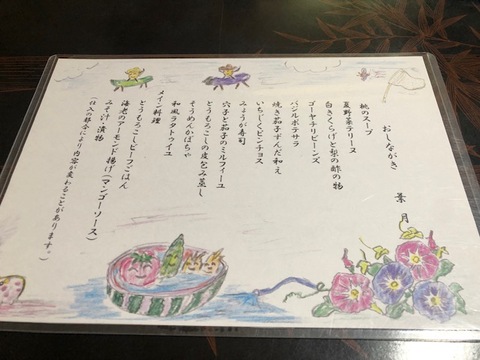 おしながき
葉月
桃のスープ
夏野菜テリーヌ
白きくらげと梨の酢の物
ゴーヤチリビーンズ
バジルポテサラ
焼き茄子ずんだ和え
いちじくピンチョス
みょうが寿司
穴子と茄子のミルフィーユ
とうもろこしの皮包み蒸し
そうめんかぼちゃ
和風ラタトゥイユ
メイン料理
とうもろこしビーフごはん
海老のアーモンド揚げ(マンゴーソース)
みそ汁・漬物
(仕入の都合により内容が変わることがあります。)